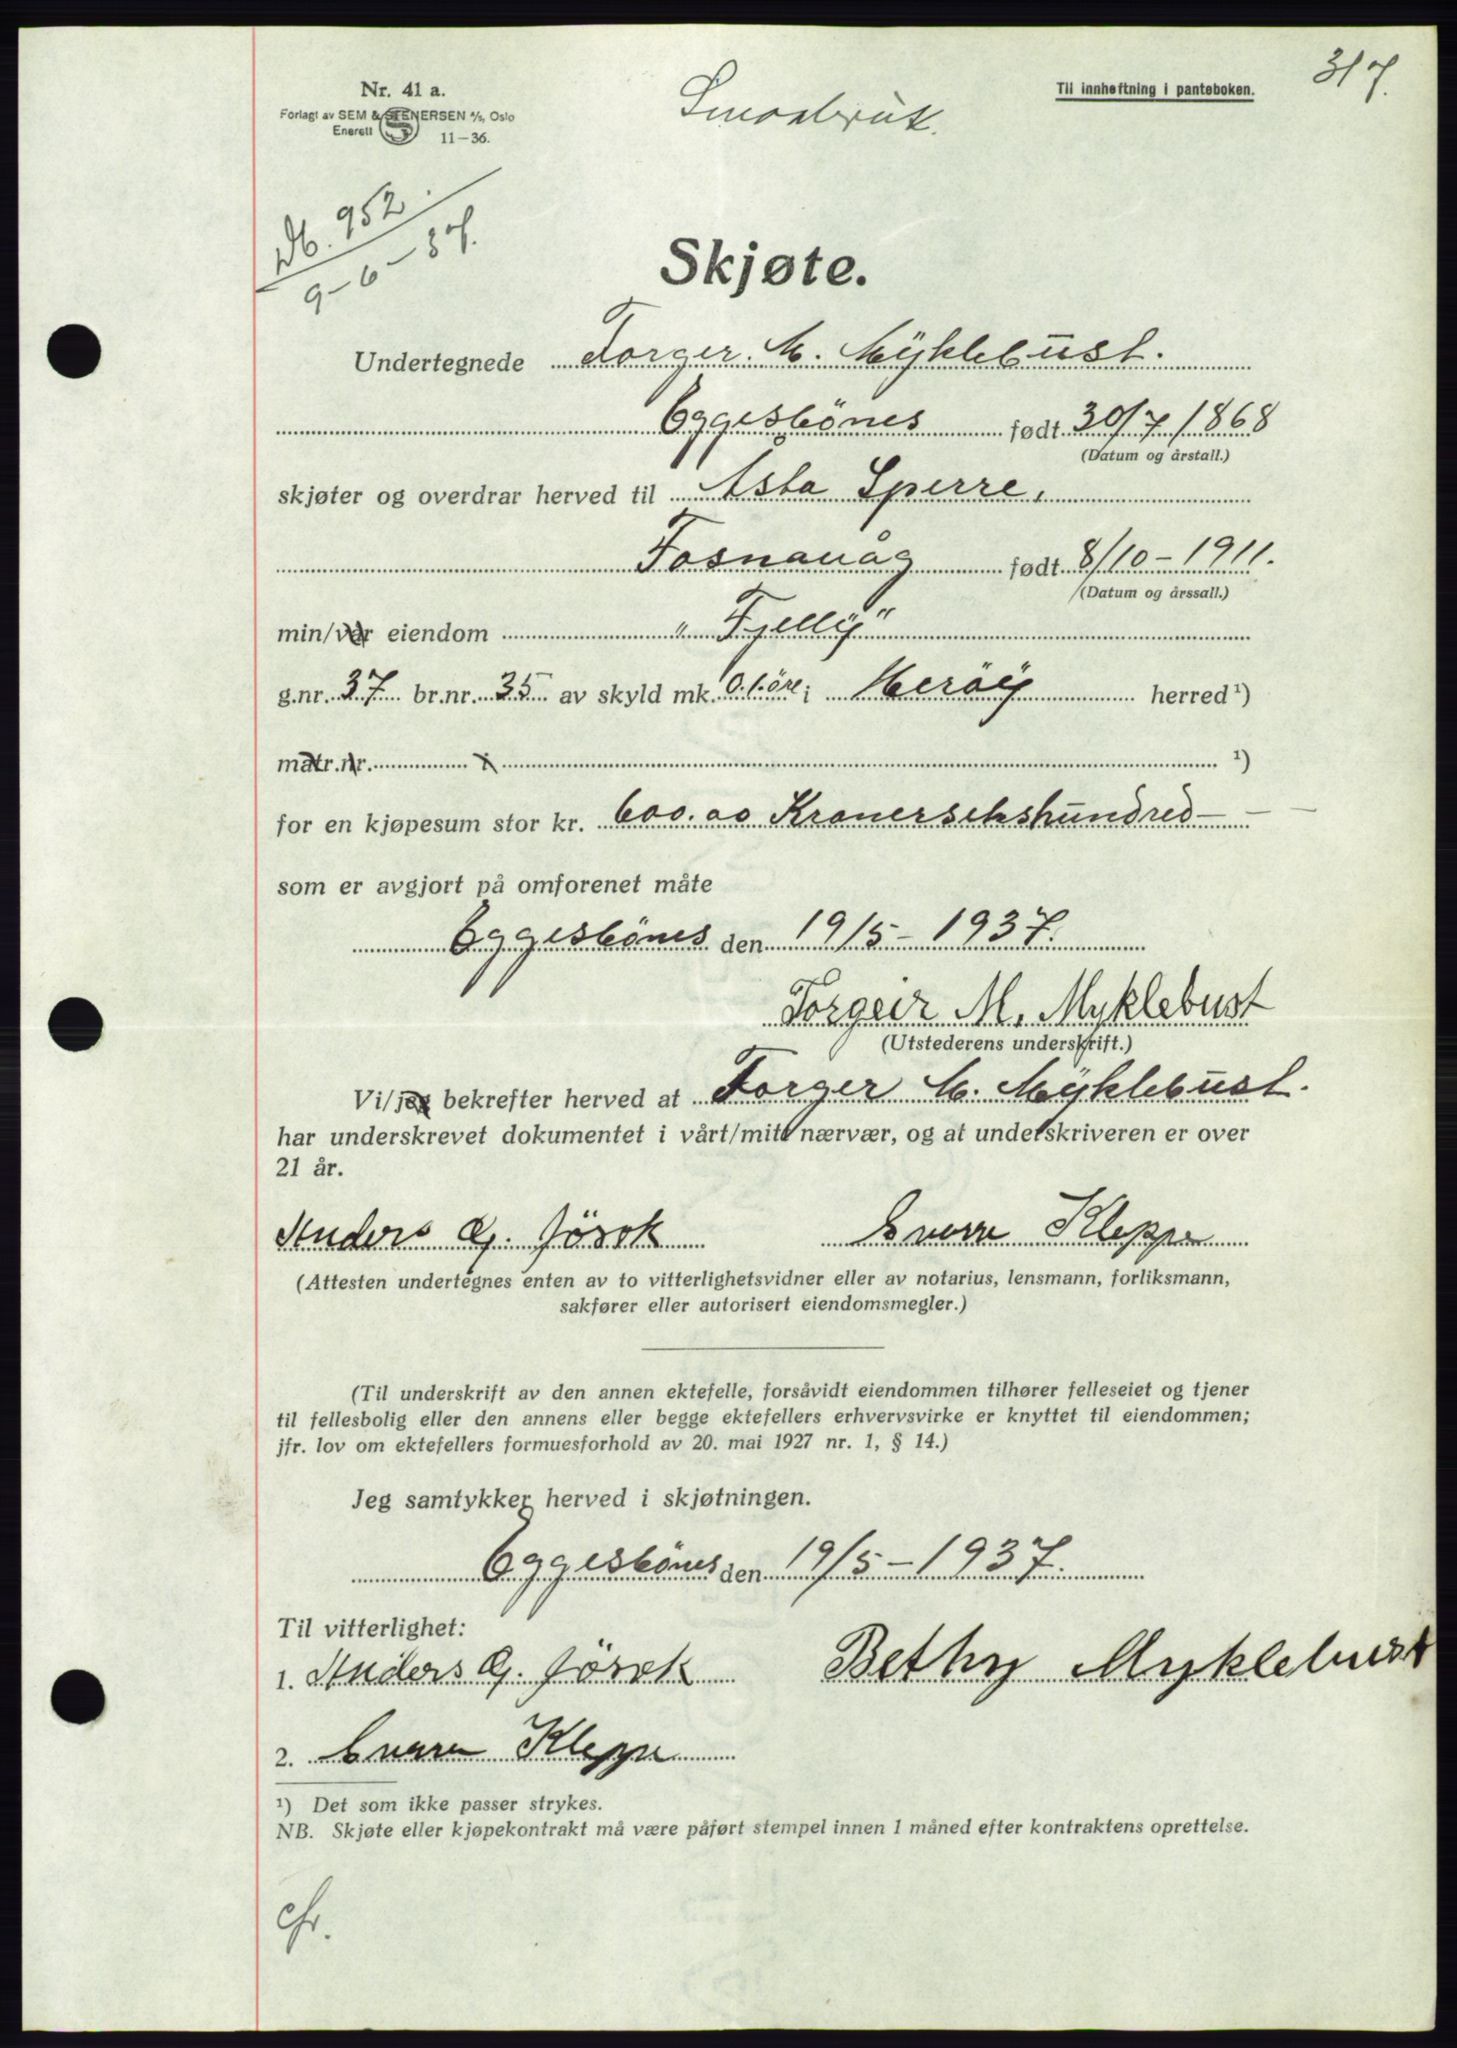 317.
Nr. 41 a.
Forlagt av SEM & STENERSEN A/S, Oslo
Enerett 11-36.
Smaabruk.
Til innheftning i panteboken.
Db. 952
9-6-37.
Skjøte.
Undertegnede Torger. M. Myklebust.
Eggesbönes født 30/7/1868
(Datum og årstall.)
skjøter og overdrar herved til Asta Sperre,
Fosnavåg født 8/10-1911.
(Datum og årssall.)
min/vår eiendom "Fjelly"
g.nr. 37 br.nr. 35 av skyld mk. 0.1.öre i Heröy herred ¹)
matr.nr. i ¹)
for en kjøpesum stor kr. 600.00 Kronersekshundred- -
som er avgjort på omforenet måte
Eggesbönes den 19/5-1937.
Torgeir M. Myklebust
(Utstederens underskrift.)
Vi/jeg bekrefter herved at Torger M. Myklebust.
har underskrevet dokumentet i vårt/mitt nærvær, og at underskriveren er over
21 år.
Anders G. Jösok Sverre Kleppe
(Attesten undertegnes enten av to vitterlighetsvidner eller av notarius, lensmann, forliksmann,
sakfører eller autorisert eiendomsmegler.)
(Til underskrift av den annen ektefelle, forsåvidt eiendommen tilhører felleseiet og tjener
til fellesbolig eller den annens eller begge ektefellers erhvervsvirke er knyttet til eiendommen;
jfr. lov om ektefellers formuesforhold av 20. mai 1927 nr. 1, § 14.)
Jeg samtykker herved i skjøtningen.
Eggesbönes den 19/5-1937.
Til vitterlighet:
1. Anders G. Jösok Bethy Myklebust
2. Sverre Kleppe
¹) Det som ikke passer strykes.
NB. Skjøte eller kjøpekontrakt må være påført stempel innen 1 måned efter kontraktens oprettelse.